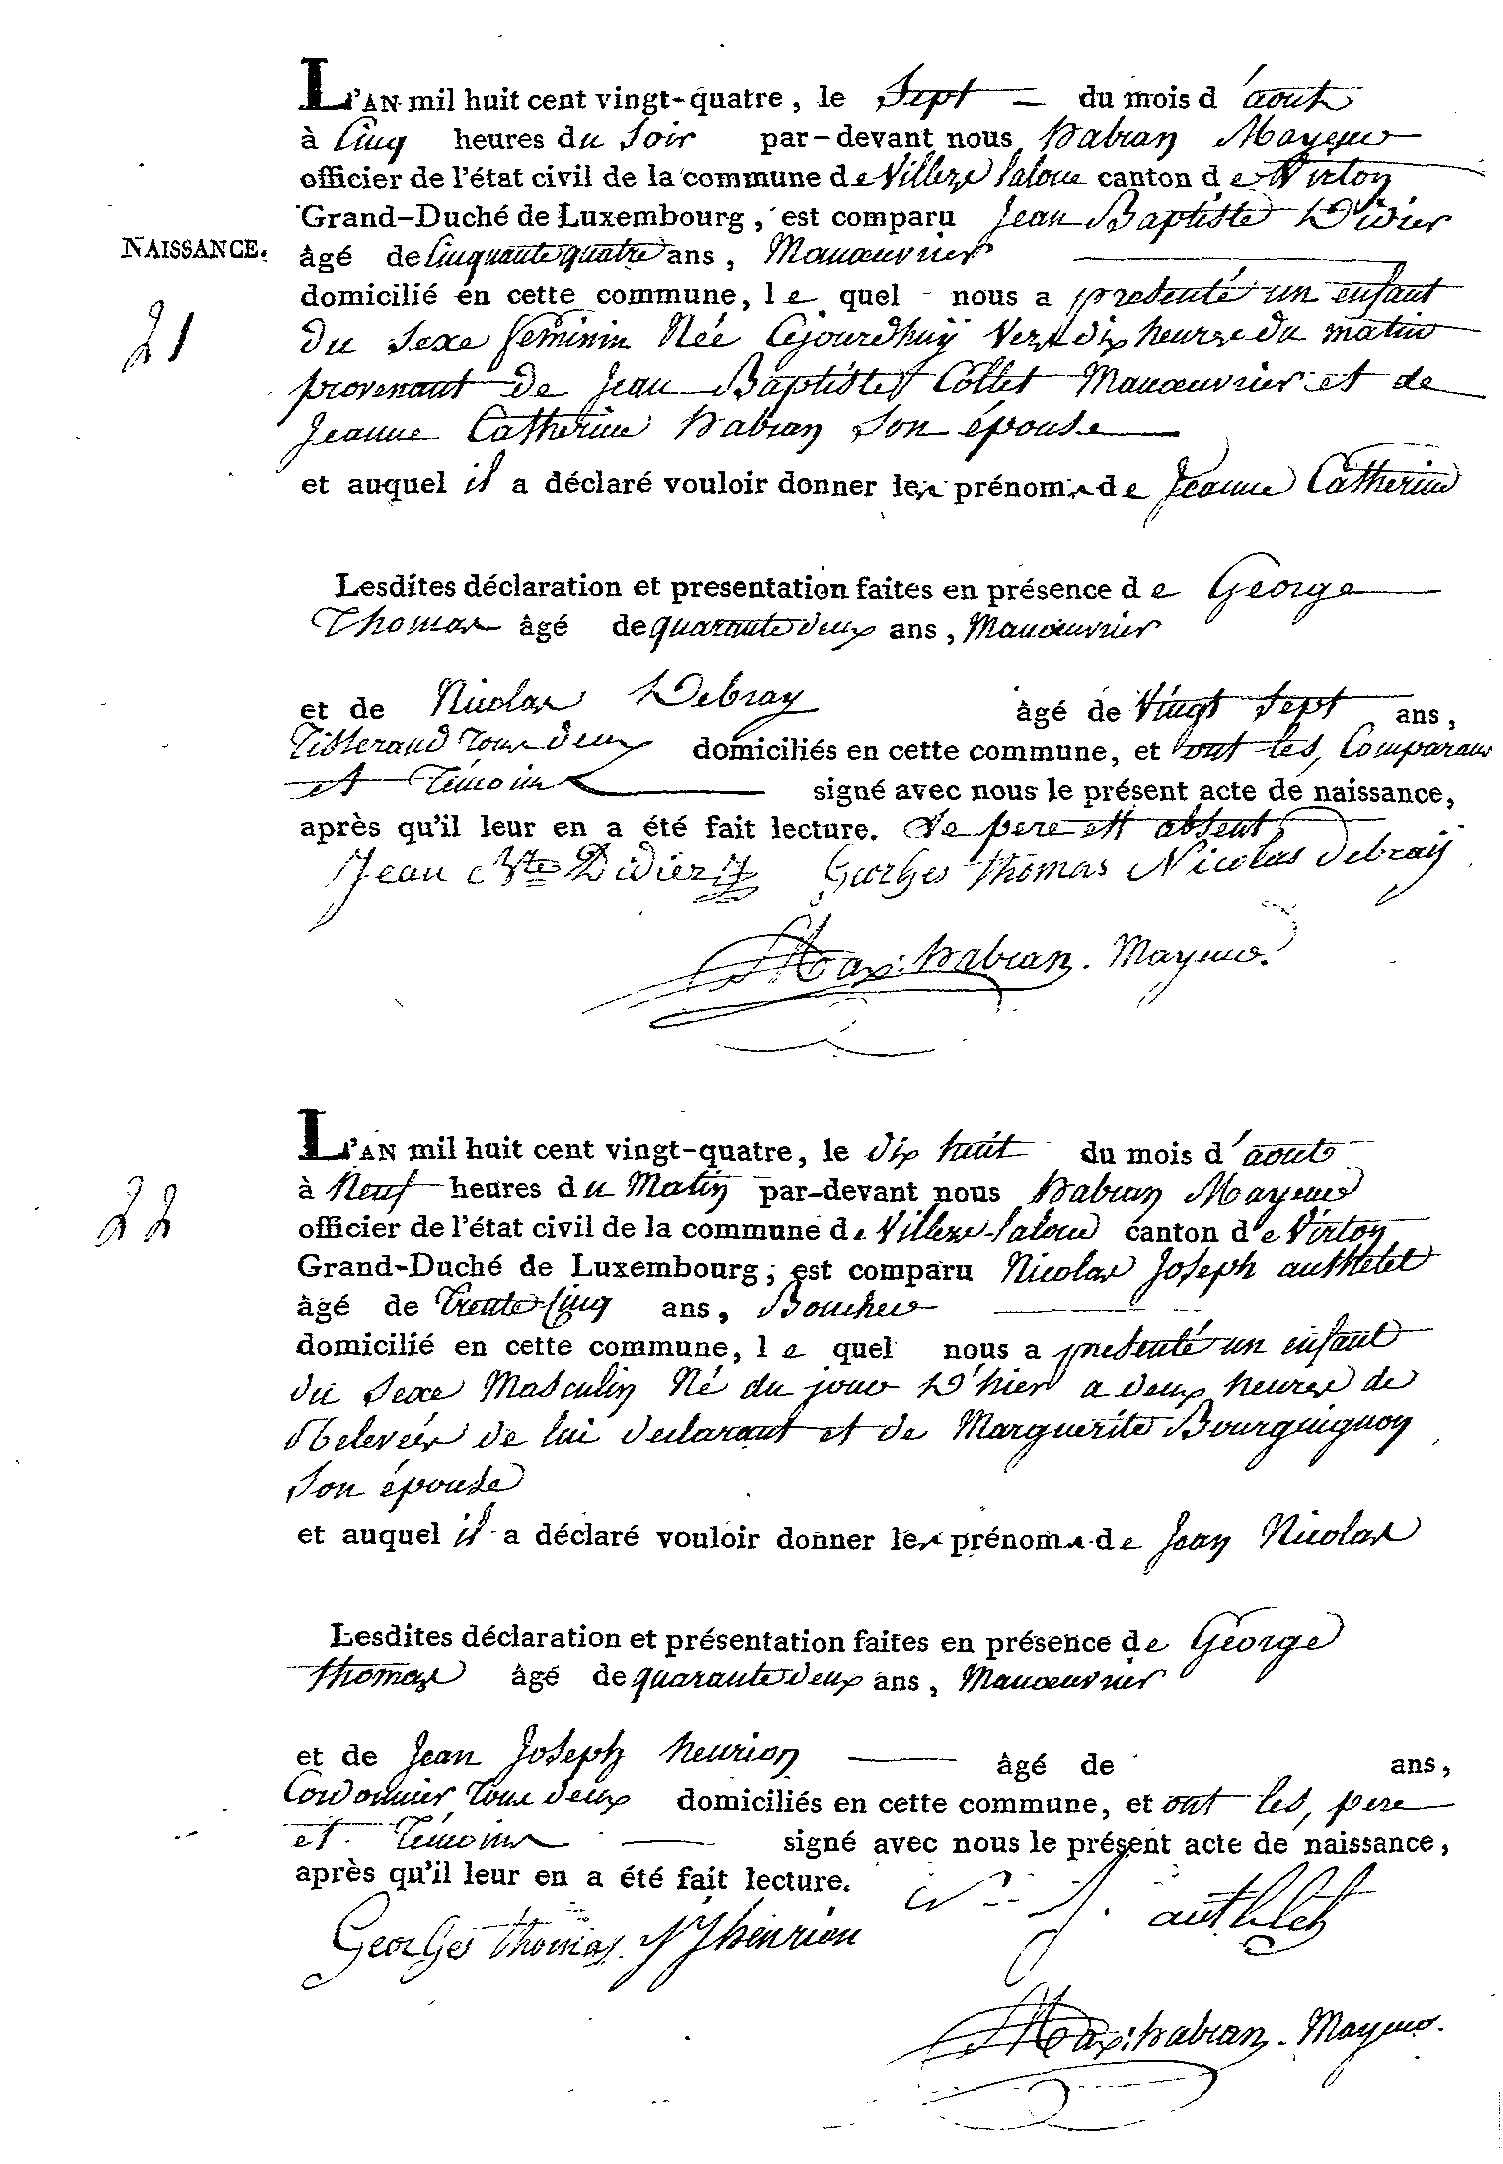 L'AN mil huit cent vingt-quatre, le Sept du mois d'aout
à Cinq heures du Soir par-devant nous habran Mayeur
officier de l'état civil de la commune de Villers laloue canton de Virton
Grand-Duché de Luxembourg, est comparu Jean Baptiste Didier
NAISSANCE. âgé de Cinquante quatre ans, Manœuvrier
domicilié en cette commune, le quel nous a presenté un enfant
21 du sexe feminin Née Cejourdhuÿ Vers dix heures du matin
provenant de Jean Baptiste Collet Manœuvrier et de
Jeanne Catherine habran Son épouse
et auquel il a déclaré vouloir donner les prénoms de Jeanne Catherine
Lesdites déclaration et presentation faites en présence de George
Thomas âgé de quarante deux ans, Manœuvrier
et de Nicolas Debray âgé de Vingt Sept ans,
Tisserand tous deux domiciliés en cette commune, et ont les, Comparant
et Témoins signé avec nous le présent acte de naissance,
après qu'il leur en a été fait lecture. Le pere est absent
Jean Bte Didier Georges thomas Nicolas debraÿ
Max: habran. Mayeur.
L'AN mil huit cent vingt-quatre, le dix huit du mois d'aout
à Neuf heures du Matin par-devant nous habran Mayeur
22 officier de l'état civil de la commune de Villers-laloue canton de Virton
Grand-Duché de Luxembourg, est comparu Nicolas Joseph authelet
âgé de Trente-Cinq ans, Boucher
domicilié en cette commune, le quel nous a presenté un enfant
du sexe Masculin Né du jour D'hier a deux heures de
Relevées de lui declarant et de Marguerite Bourguignon
Son épouse
et auquel il a déclaré vouloir donner les prénoms de Jean Nicolas
Lesdites déclaration et présentation faites en présence de George
thomas âgé de quarante deux ans, Manœuvrier
et de Jean Joseph henrion âgé de ans,
Cordonnier tous deux domiciliés en cette commune, et ont les, pere
et Témoins signé avec nous le présent acte de naissance,
après qu'il leur en a été fait lecture. N J. authlet
Georges thomas. JJ henrion
Max: habran. Mayeur.